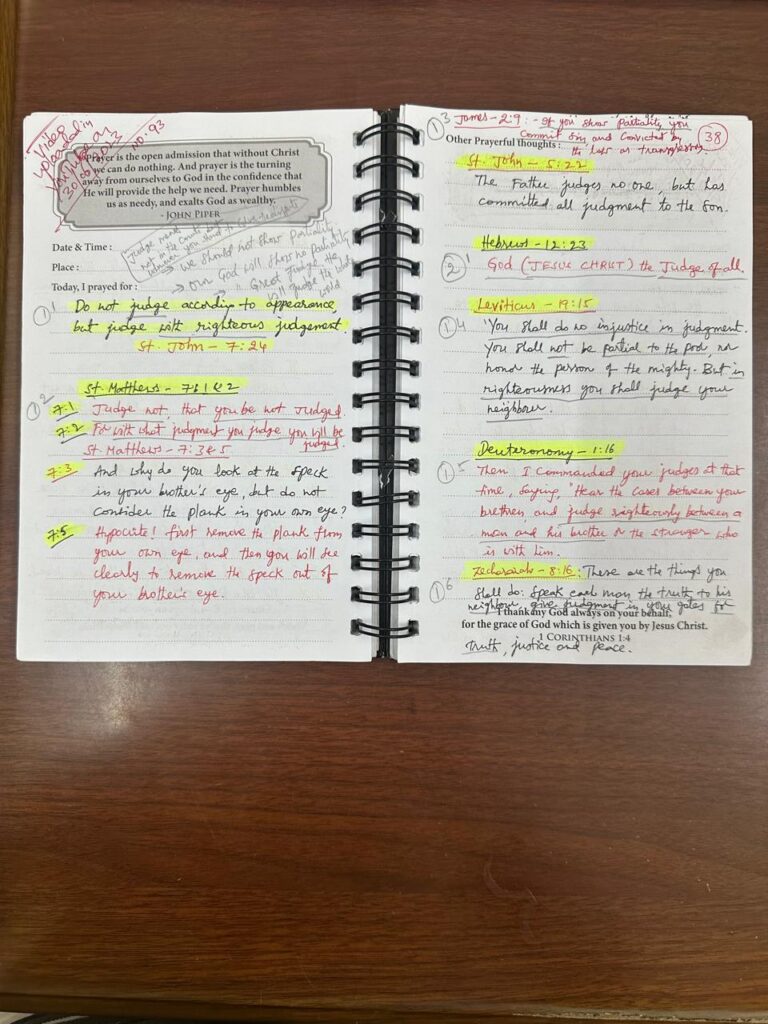 Video
uploaded in
YouTube on
NO. 93
Prayer is the open admission that without Christ
we can do nothing. And prayer is the turning
away from ourselves to God in the confidence that
He will provide the help we need. Prayer humbles
us as needy, and exalts God as wealthy.
- JOHN PIPER
Date & Time :
Place :
Today, I prayed for :
Judge
not in the
→ we should not show Partiality
→ our God will show no Partiality
→ Great Judge He
will Judge the
①1 Do not judge according to appearance,
but judge with righteous judgement.
St. John - 7:24
①2 St. Matthews - 7:1 & 2
7:1 Judge not, that you be not Judged.
7:2 For with what judgment you judge you will be
judged.
St. Matthews - 7:3 & 5
7:3 And why do you look at the speck
in your brother's eye, but do not
consider the plank in your own eye?
7:5 Hypocite! first remove the plank from
your own eye, and then you will see
clearly to remove the speck out of
your brother's eye.
①3 James - 2:9 :- If you show Partiality you
Commit Sin and Convicted by
the law as transgressors
38
Other Prayerful thoughts :
St. John - 5:22
The Father judges no one, but has
committed all judgment to the Son.
Hebrews - 12:23
②1 God (JESUS CHRIST) the Judge of all.
Leviticus - 19:15
①4 'You shall do no injustice in judgment.
You shall not be partial to the poor, nor
honor the person of the mighty. But in
righteousness you shall judge your
neighbour.
Deuteronomy - 1:16
①5 Then I commanded your judges at that
time, saying, "Hear the cases between your
brethren, and judge righteously between a
man and his brother or the stranger who
is with him.
①6 Zechariah - 8:16 : These are the things you
shall do: Speak each man the truth to his
neighbour, give judgment in your gates for
I thank my God always on your behalf,
for the grace of God which is given you by Jesus Christ.
1 CORINTHIANS 1:4
truth, justice and peace.